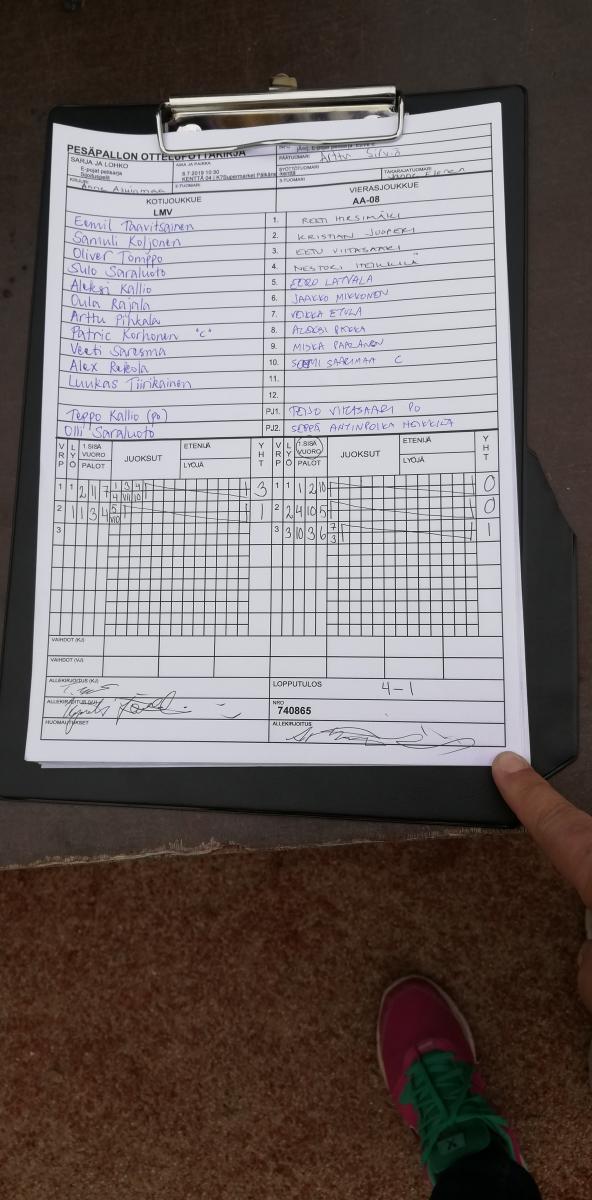 PESÄPALLON OTTELUPÖYTÄKIRJA
SARJA JA LOHKO
E-pojat pelisarja
Sijoituspelit
AIKA JA PAIKKA
9.7.2019 10:30
KENTTÄ 04 | K?Supermarket Pälkäne kenttä
PÄÄTUOMARI
Arttu
SYÖTTÖTUOMARI
TAKARAJATUOMARI
KIRJURI
Anne
2-TUOMARI
3-TUOMARI
KOTIJOUKKUE
VIERASJOUKKUE
LMV
AA-08
Eemil Taavitsainen 1. REETI HIRSIMÄKI
Samuli Koljonen 2. KRISTIAN JUOPERI
Oliver Tomppo 3. EETU VIITASAARI
Sulo Saraluoto 4. NESTORI HEIKKILÄ
Aleksi Kallio 5. EERO LATVALA
Oula Rajala 6. JAAKKO MIKKONEN
Arttu Pihkala 7. VEIKKA ETULA
Patric Korhonen "C" 8. ALEKSI PEKKA
Veeti Saresma 9. MISKA PAALANEN
Alex Rekola 10. SAARIMAA C
Luukas Tiirikainen 11.
12.
Teppo Kallio (po) PJ1. TEIJO VIITASAARI PO
Olli Saraluoto PJ2. SEPPÄ ANTINPOIKA HEIKKILÄ
VRP LYÖ 1.SISÄ VUORO PALOT JUOKSUT ETENIJÄ LYÖJÄ YHT VRP LYÖ 1.SISÄ VUORO PALOT JUOKSUT ETENIJÄ LYÖJÄ YHT
1 1 2 11 7 1 3 4 3 1 1 1 2 10 0
4 VII 10
2 11 3 4 5 1 2 2 4 10 5 0
VII0
3 3 3 10 3 6 7 1
3
VAIHDOT (KJ)
VAIHDOT (VJ)
ALLEKIRJOITUS (KJ)
LOPPUTULOS 4-1
ALLEKIRJOITUS (VJ)
NRO
740865
HUOMAUTUKSET
ALLEKIRJOITUS